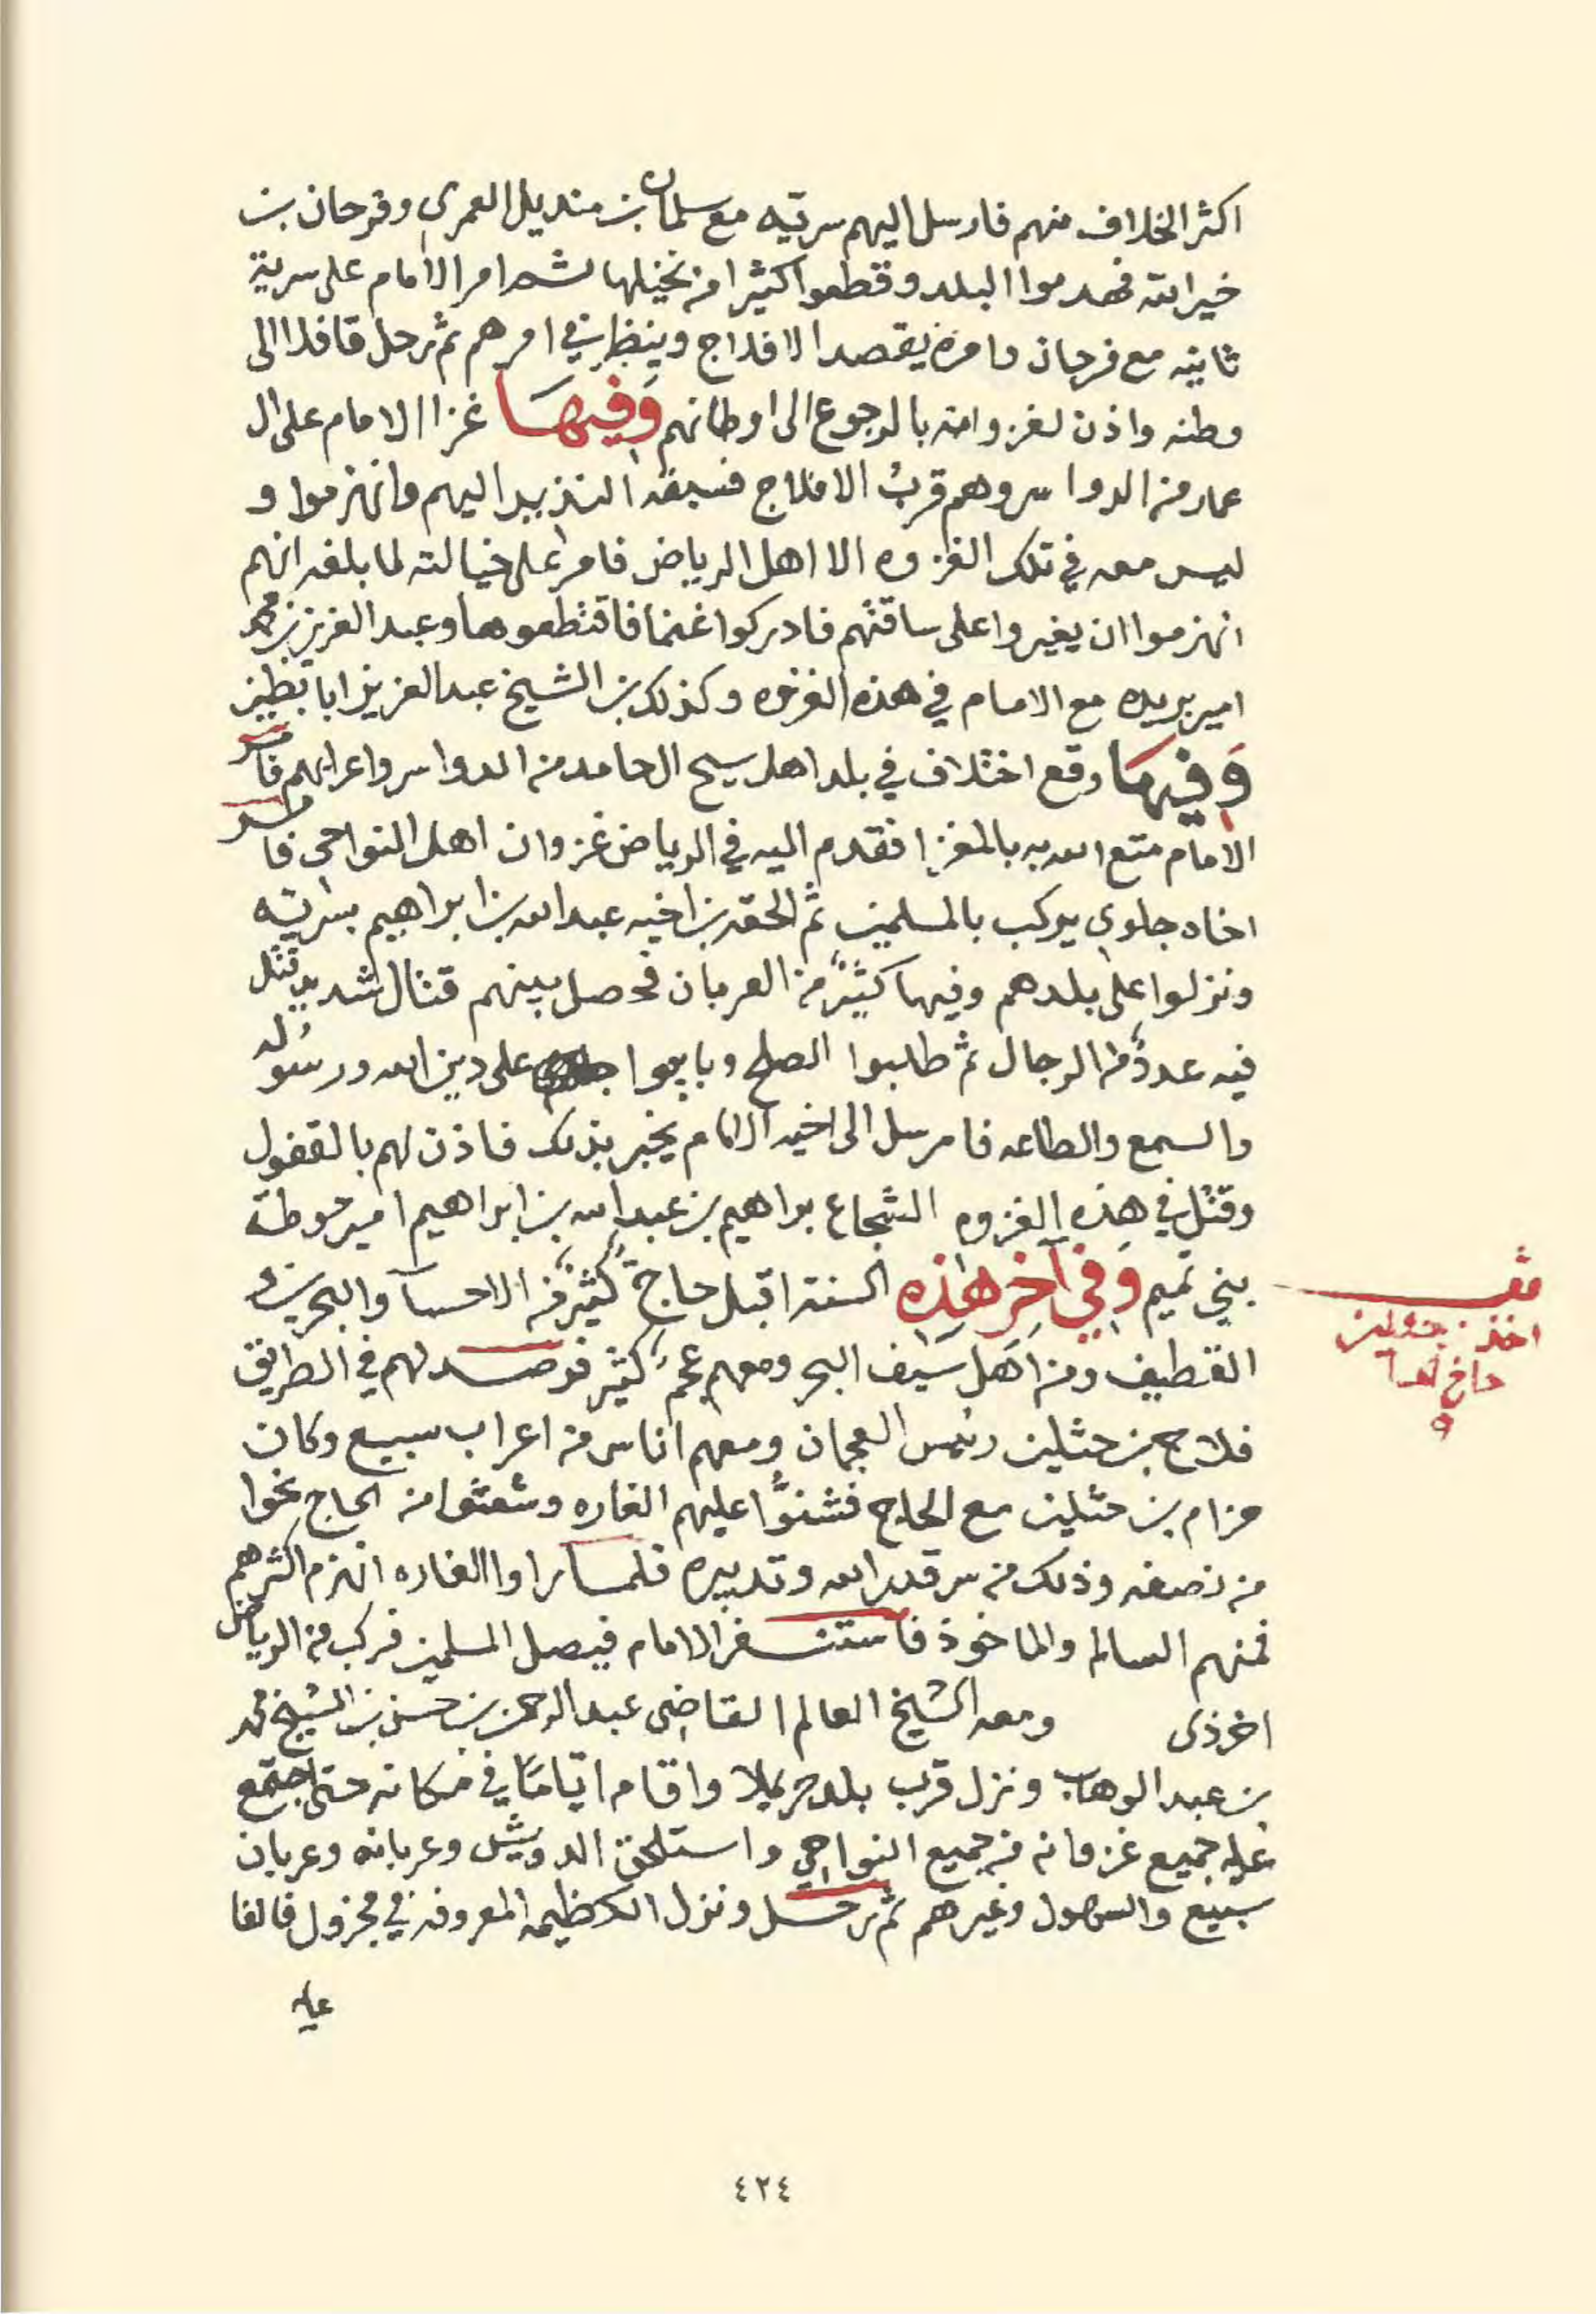 اكثر الخلاف منهم فارسل اليهم سريه مع سلمان بن منديل العمري وفرحان بن
خير الله فهدموا البلد وقطعوا كثيرا من نخيلها ثم امر الامام على سرية
ثانيه مع فرحان وامره يقصد الافلاج وينظر في امرهم ثم رحل قافلا الى
وطنه واذن لغزوانه بالرجوع الى اوطانهم وَفيهَا غزا الامام على ال
عمار من الدواسر وهم قربُ الافلاج فسبقه النذير اليهم وانهزموا و
ليس معه في تلك الغزوه الا اهل الرياض فامر على خيالته لما بلغه انهم
انهزموا ان يغيروا على ساقتهم فادركوا غنما فاقتطعوها وعبد العزيز بن محمد
امير بريده مع الامام في هذه الغزوه وكذلك بن الشيخ عبد العزيز ابابطين
وَفيهَا وقع اختلاف في بلد اهل سيح ال حامد من الدواسر واعرابهم فامر
الامام متع الله به بالمغزا فقدم اليه في الرياض غزوان اهل النواحي فامر
اخاه جلوي يركب بالمسلمين ثم الحقه بن اخيه عبد الله بن ابراهيم بسريه
ونزلوا على بلدهم وفيها كثيرٌ من العربان فحصل بينهم قتال شديد قتل
فيه عددٌ من الرجال ثم طلبوا الصلح وبايعوا على دين الله ورسوله
والسمع والطاعه فارسل الى اخيه الامام يخبر بذلك فاذن لهم بالقفول
وقتل في هذه الغزوه الشجاع براهيم بن عبد الله بن ابراهيم امير حوطة
بني تميم وَفي آخر هَذِه السنة اقبل حاج كثيرٌ من الاحسآ والبحرين و
القطيف ومن اهَل سَيف البحر ومعهم عجمٌ كثير فرصد لهم في الطريق
فلاح بن حثلين رئيس العجمان ومعهم اناس من اعراب سبيع وكان
حزام بن حثلين مع الحاج فشنوَّا عليهم الغاره وشعثوا من الحاج نحوا
من نصفه وذلك من سر قدر الله وتدبيره فلما راوا الغاره انهزم اكثرهم
فمنهم السالم والماخوذ فاستنفر الامام فيصل المسلمين فركب من الرياض
اخر ذي ومعه الشيخ العالم القاضي عبد الرحمن بن حسن بن الشيخ محمد
بن عبد الوهاب ونزل قرب بلد حريملا واقام ايّامًا في مكانه حتى اجتمع
عليه جميع غزوانه من جميع النواحي واستلحق الدويش وعربانه وعربان
سبيع والسهول وغيرهم ثم رحل ونزل الكظيمه المعروفه في مجزول فالفا
عليه
اخذ بن حثلين
حاج الحسا
٤٢٤